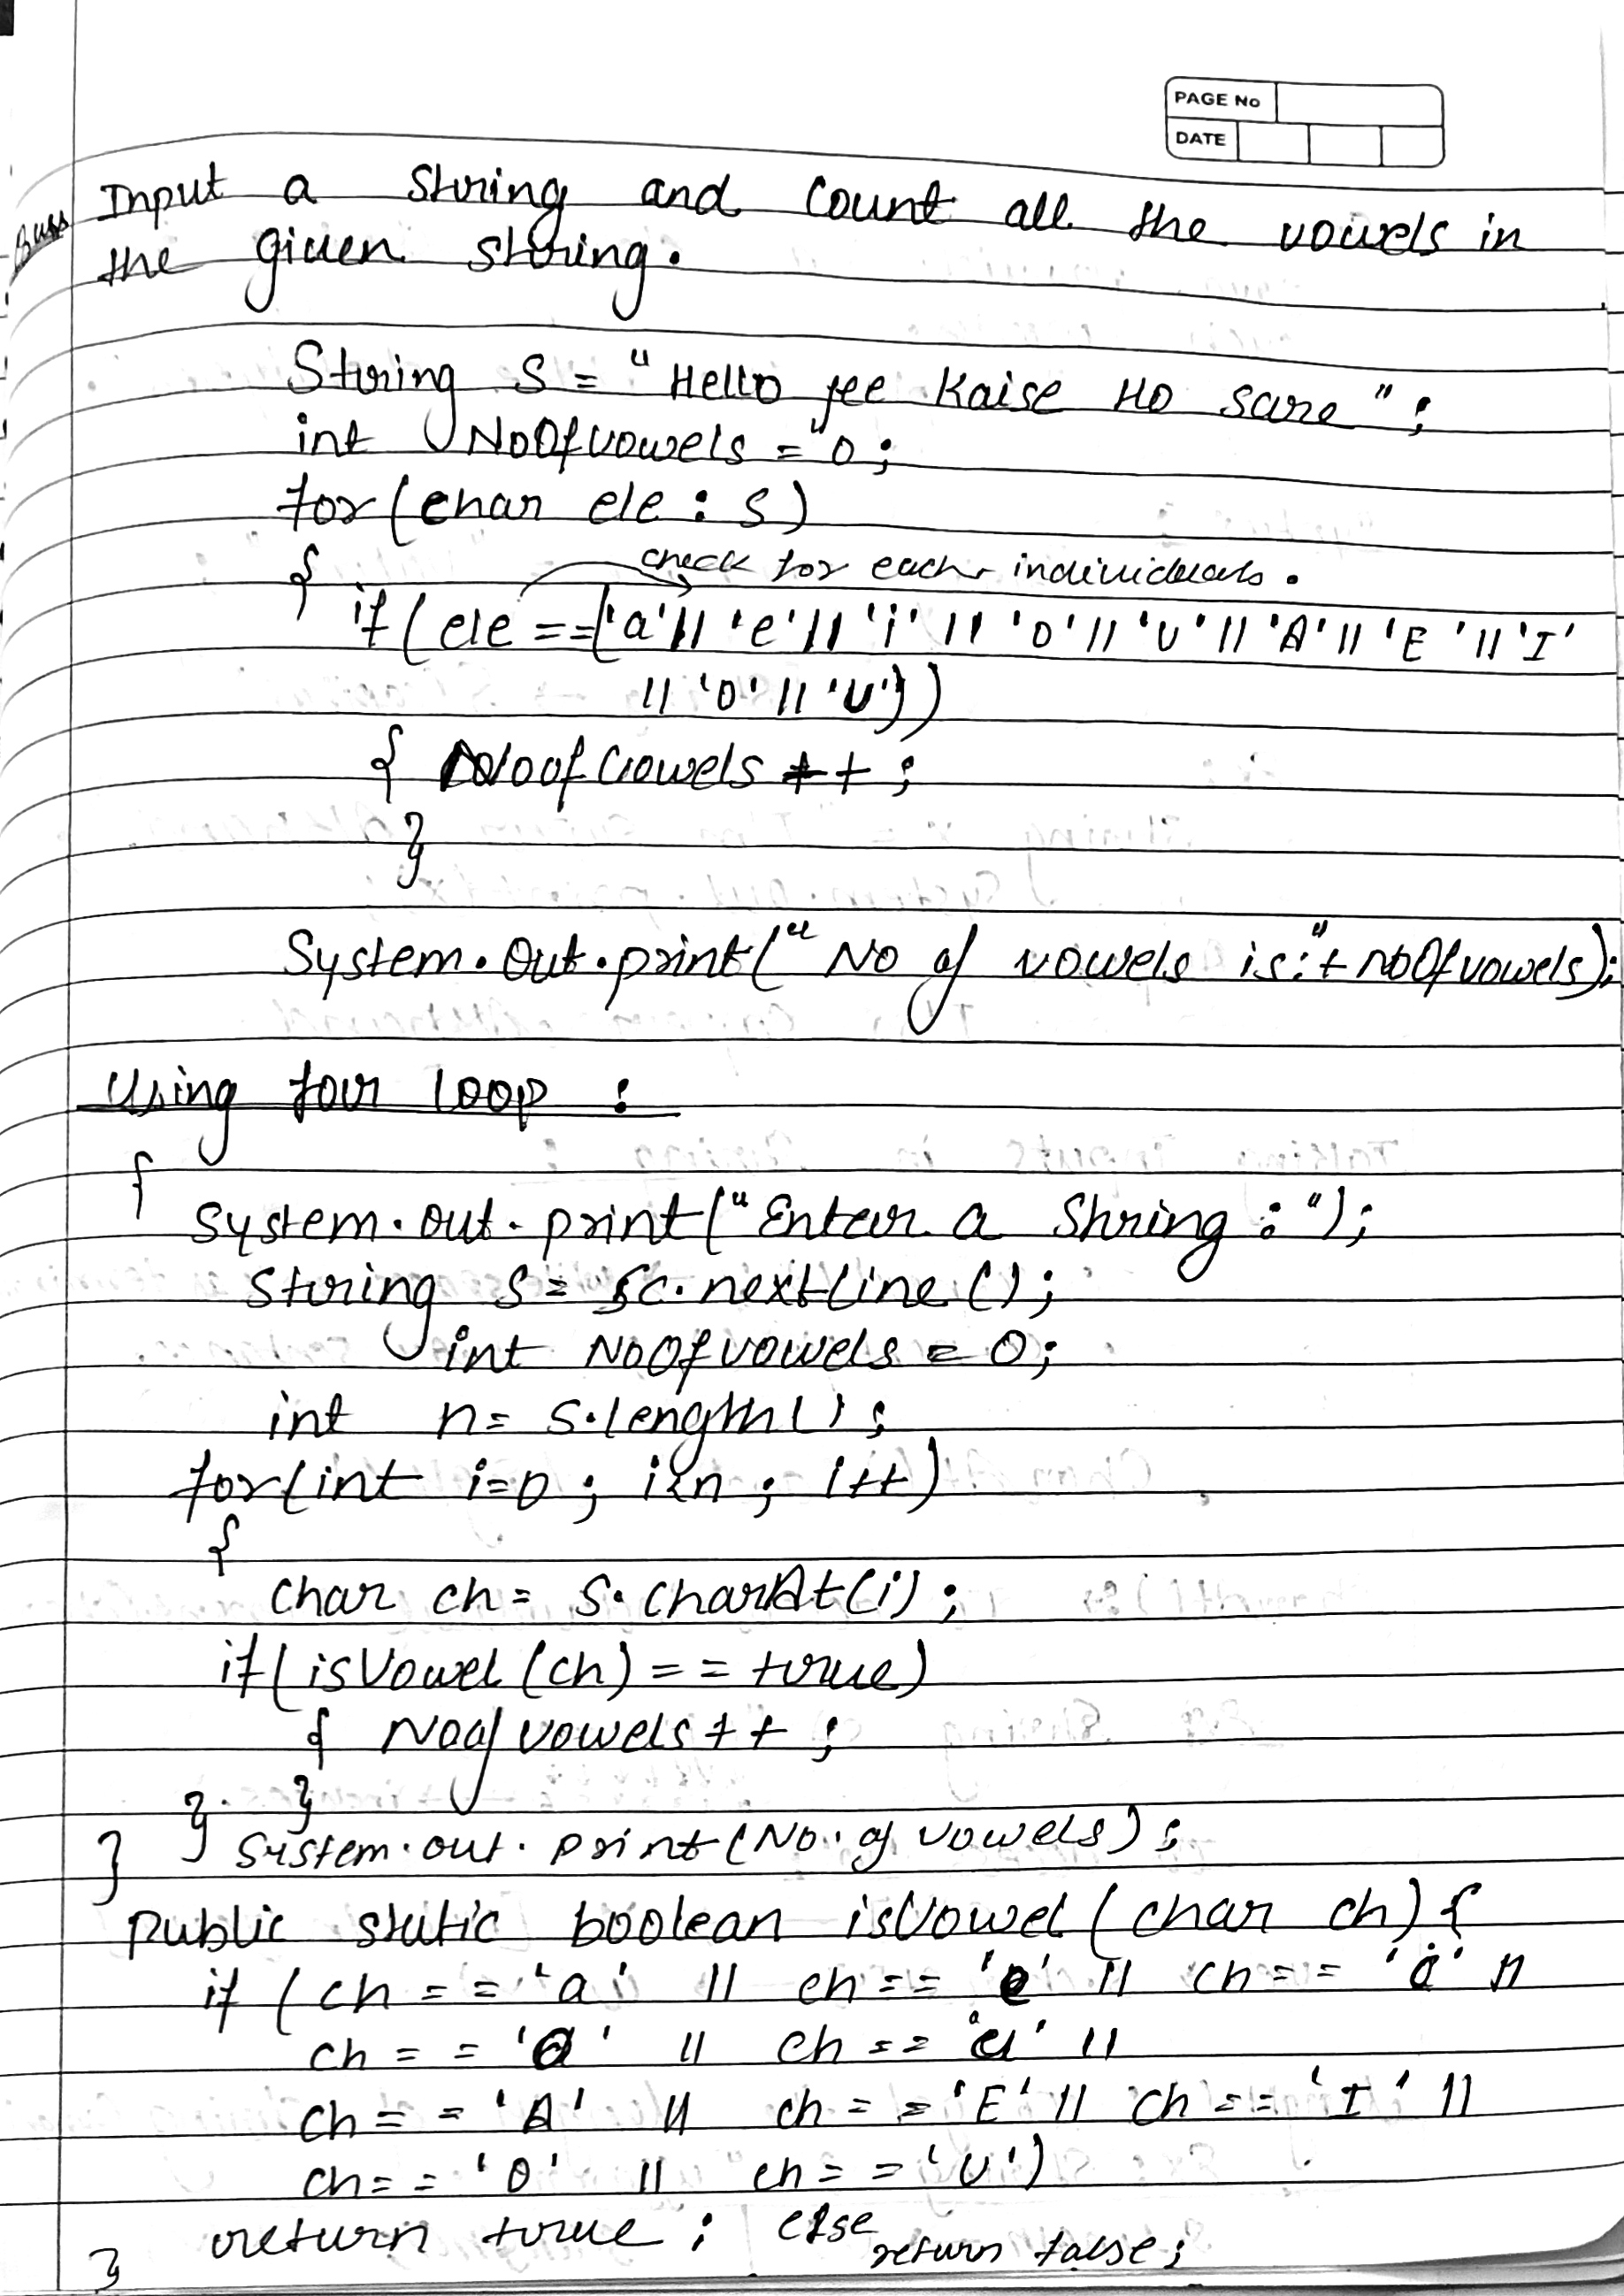 PAGE No
DATE
Input a String and Count all the vowels in
the given string.
String S = " Hello jee Kaise Ho sare " ;
int NoOfvowels = 0 ;
for(char ele : s)
{ check for each individuals.
if( ele == ('a' || 'e' || 'i' || 'o' || 'u' || 'A' || 'E' || 'I'
|| 'O' || 'U'))
{ Noofvowels ++ ;
}
System.Out.print(" No of vowels is:"+ noOfvowels);
Using for loop :
{
System.out.print("Enter a String : ");
String S = sc.nextline();
int NoOfvowels = 0;
int n= s.length();
for(int i=0 ; i<n ; i++)
{
char ch= s.charAt(i) ;
if(isVowel(ch) == true)
{ Noofvowels ++ ;
}
}
} System.out.print(No.of vowels);
Public static boolean isVowel(char ch) {
if (ch == 'a' || ch == 'e' || ch == 'i' ||
ch == 'o' || ch == 'u' ||
ch == 'A' || ch == 'E' || ch == 'I' ||
ch == 'O' || ch == 'U')
return true ; else return false;
}